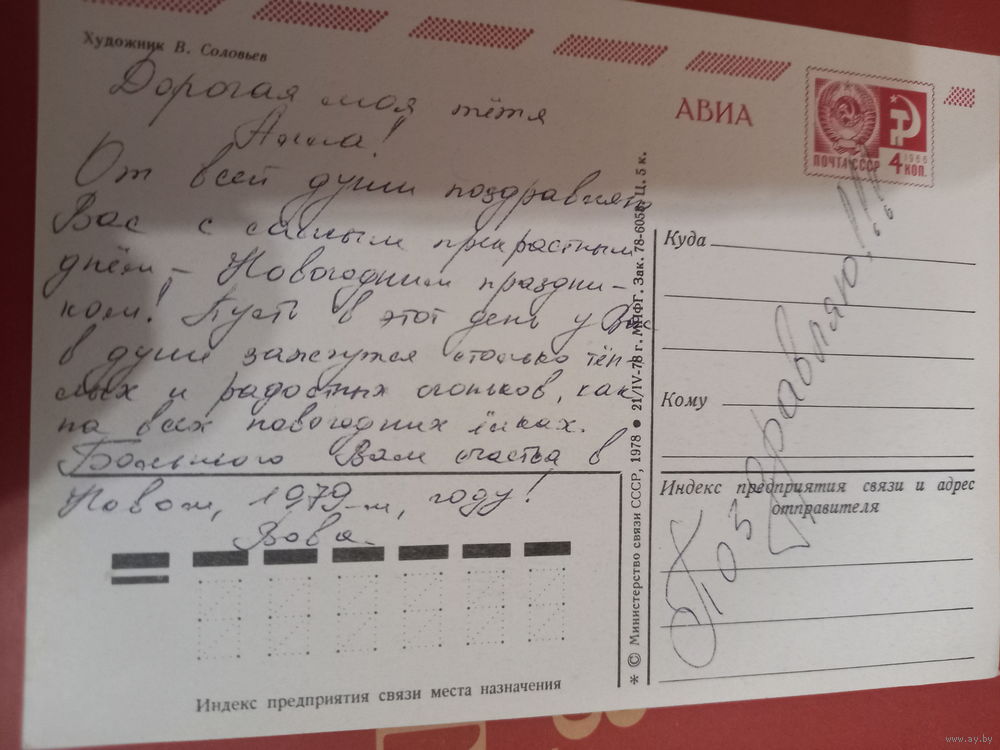 Художник В. Соловьев
АВИА
ПОЧТА СССР
1966
4 КОП.
Дорогая моя тётя
Анна!
От всей души поздравляю
Вас с самым прекрастным
днём – Новогодним праздни-
ком! Пусть в этот день у Вас
в душе зажгутся столько тёп-
лых и радостных огоньков, как
на всех новогодних ёлках.
Большого Вам счастья в
Новом, 1979-м, году!
Вова.
Индекс предприятия связи места назначения
* © Министерство связи СССР, 1978 ● 21/IV-78 г. МПФГ. Зак. 78-6058. Ц. 5 к.
Куда
Кому
Индекс предприятия связи и адрес
отправителя
Поздравляю!!!
www.ay.by